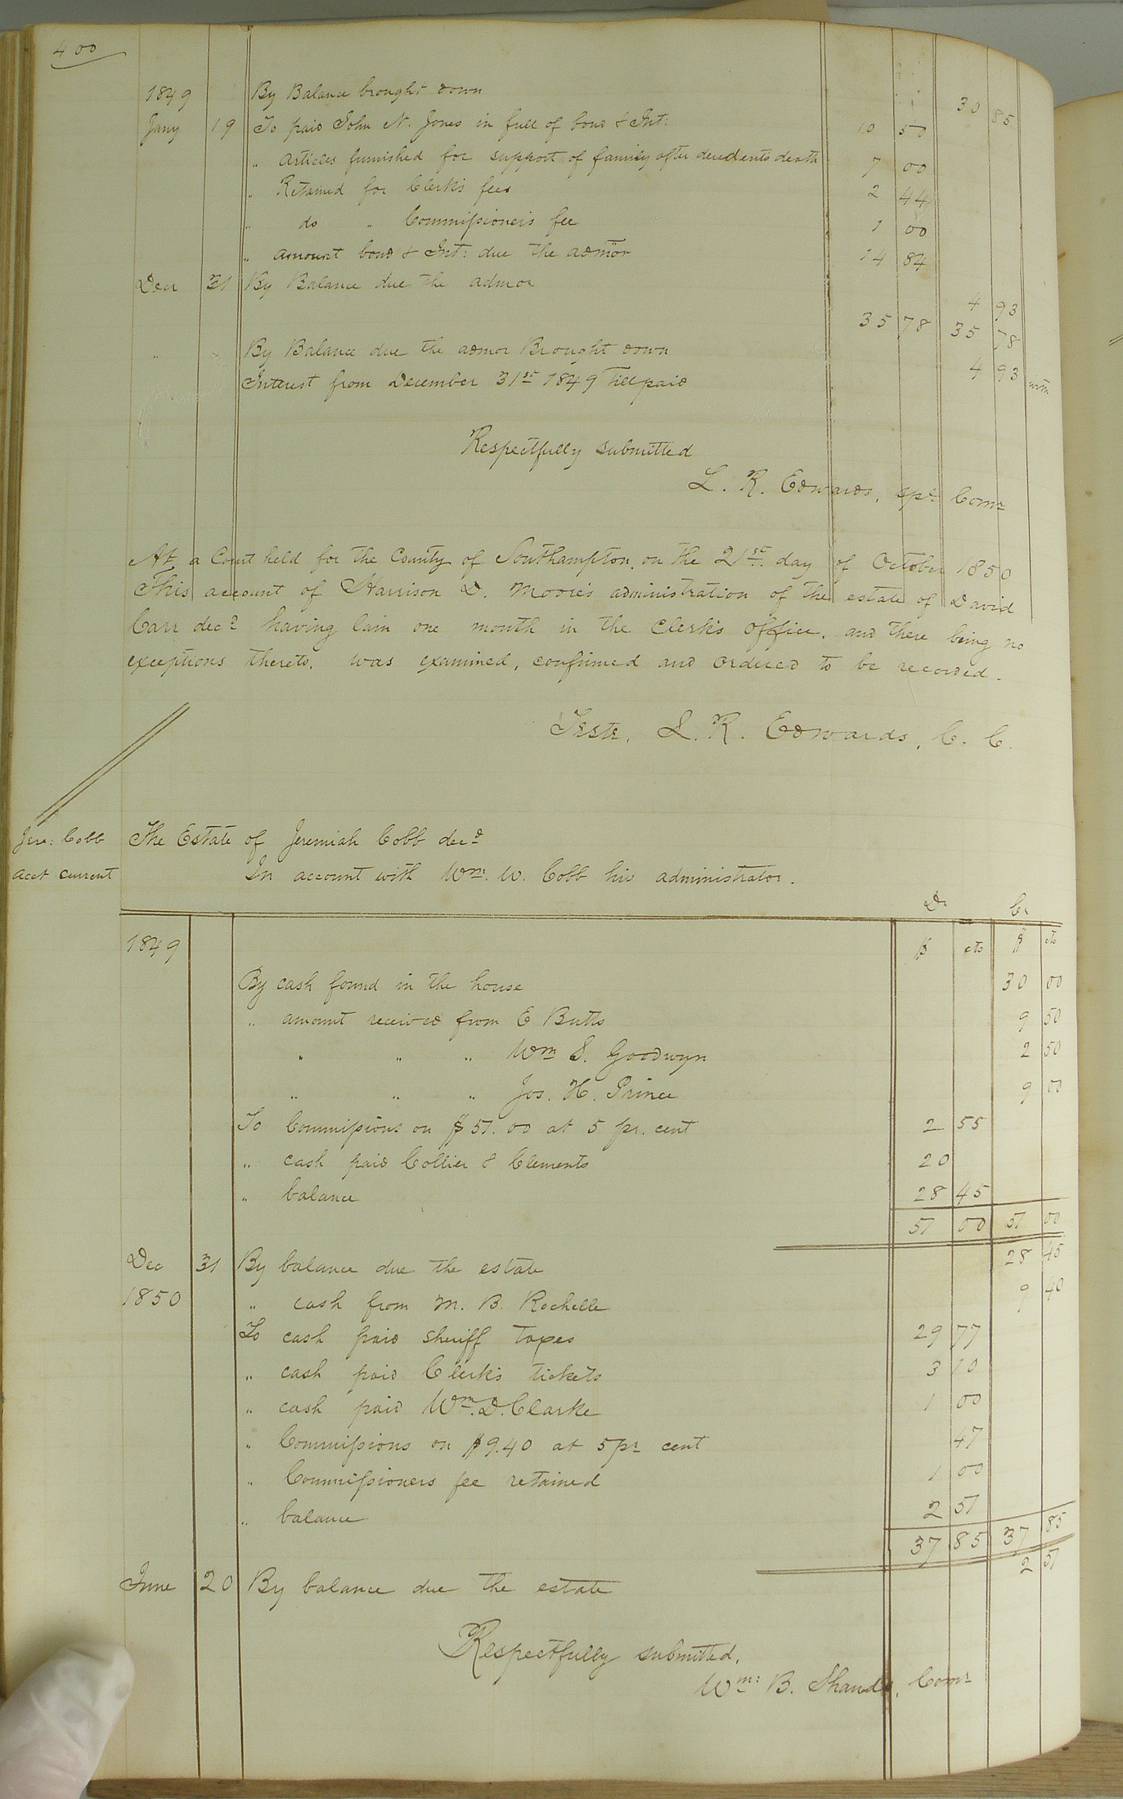 400
1849 By Balance brought down 30 85
Jany 19 To paid John N. Jones in full of bond & Int: 10 50
" articles furnished for support of family after decedents death 7 00
" Retained for Clerk's fees 2 44
" do " Commissioner's fee 1 00
" amount bond & Int: due the admor 14 84
Decr 31 By Balance due the admor 4 93
35 78 35 78
By Balance due the admor Brought down 4 93 with
Interest from December 31st 1849 till paid
Respectfully submitted
L. R. Edwards, Spl Comr
At a Court held for the County of Southampton, on the 21st day of October 1850
This account of Harrison D. Moore's administration of the estate of David
Carr decd having lain one month in the Clerk's office, and there being no
exceptions thereto, was examined, confirmed and ordered to be recorded.
Teste, L. R. Edwards, C. C.
Jere: Cobb The Estate of Jeremiah Cobb decd
acct current In account with Wm. W. Cobb his administrator.
Dr Cr
1849 $ cts $ cts
By cash found in the house 30 00
" amount received from E Butts 9 50
" " " Wm S. Goodwyn 2 50
" " " Jos. H. Prince 9 00
To Commissions on $51.00 at 5 pr. cent 2 55
" cash paid Collier & Clements 20
" balance 28 45
51 00 51 00
Dec 31 By balance due the estate 28 45
1850 " cash from M. B. Rochelle 9 40
To cash paid sheriff taxes 29 77
" cash paid Clerk's tickets 3 10
" cash paid Wm. D. Clarke 1 00
" Commissions on $9.40 at 5 pr cent 47
" Commissioners fee retained 1 00
" balance 2 51
37 85 37 85
June 20 By balance due the estate 2 51
Respectfully submitted,
Wm: B. Shands, Comr